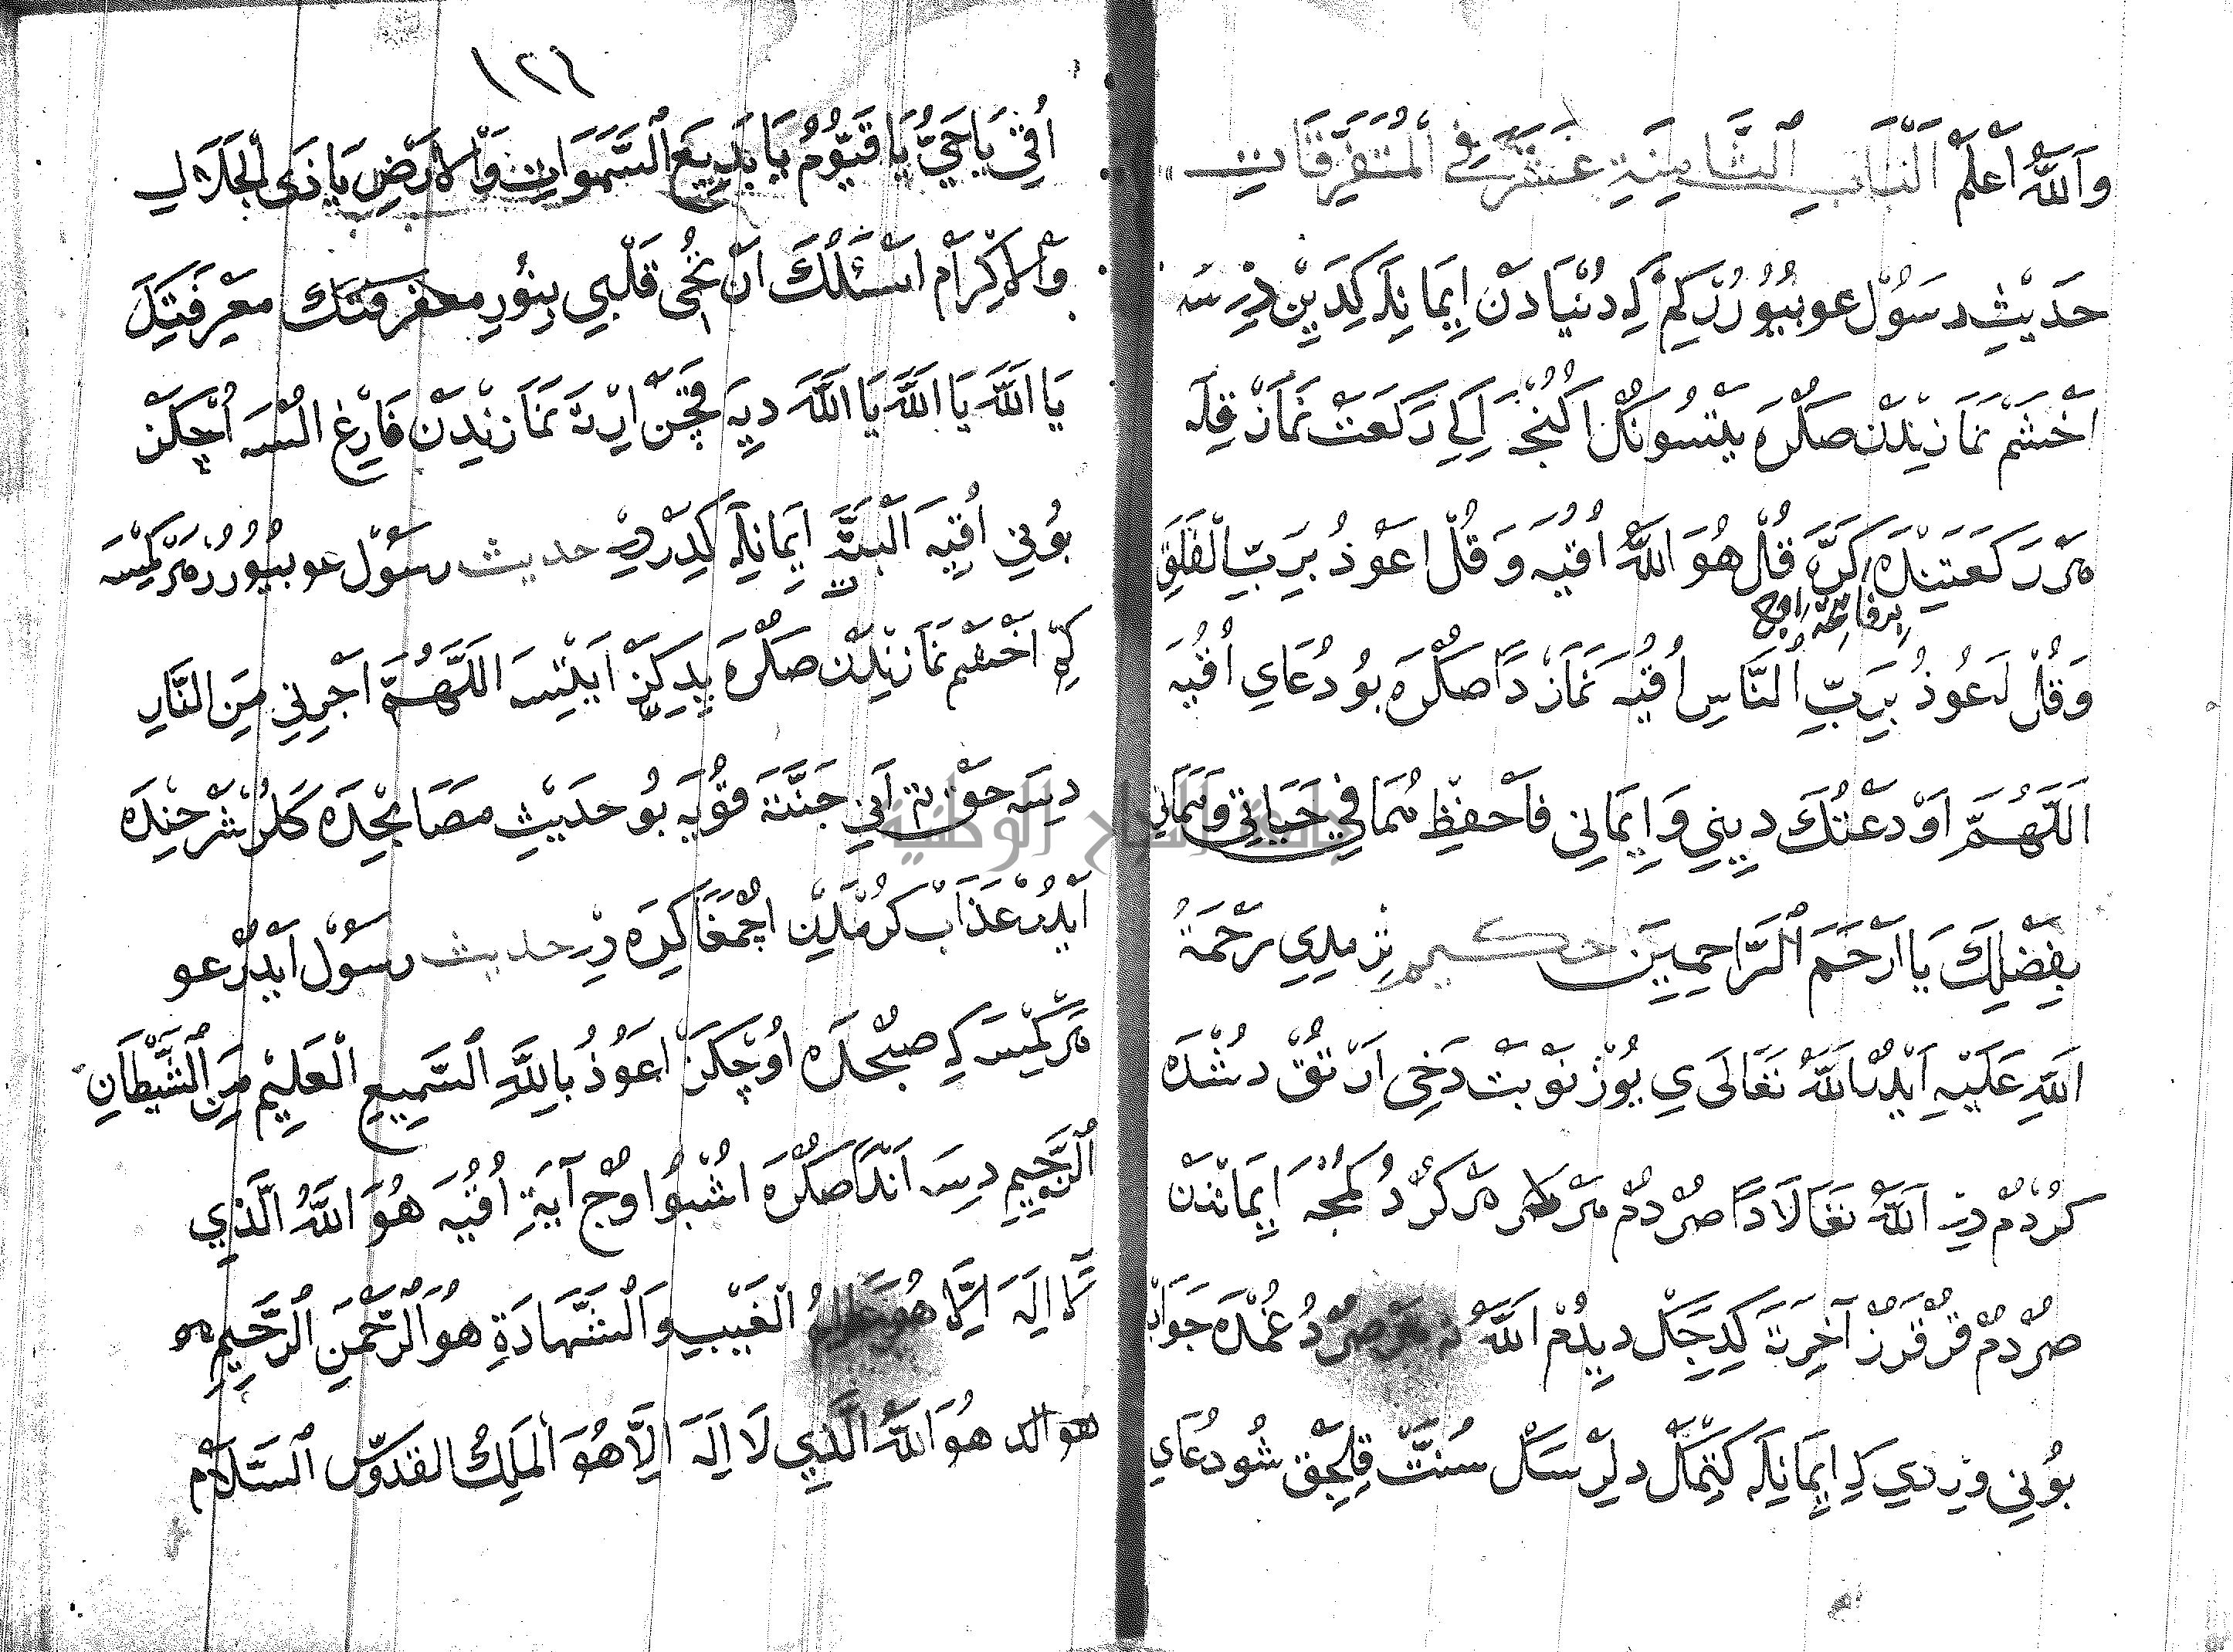 وَاَللّٰهُ اَعْلَمْ اَلْبَابِ اَلثَّامِنَةِ عَشَرَ فِي اَلْمُتَفَرِّقَاتِ
حَدِيْثِ رَسُوْل عو بُيُوُرُرْ كِمْ كِه دُنْيَادَنْ اِيمَانِلَه كِدَيِنْ دِرْسَه
اَخْشَمْ نَمَازِنْدَنْ صَكْرَه يَتْسُونَكْ اُكُنْجَه اِكِي رَكَعَتْ نَمَازْ قِلَه
هَرْ رَكَعَتِنْدَه كَرَّه قُلْ هُوَ اللّٰهُ اُقُيَه وَقُلْ اَعُوْذُ بِرَبِّ الْفَلَقِ
بر فاتحه اوچ
وَقُلْ اَعُوْذُ بِرَبِّ النَّاسِ اُقُيَه نَمَازْدَنْ صَكْرَه بُو دُعَايِ اُقُيَه
اَللّٰهُمَّ اَوْدَعْتُكَ دِينِي وَاِيمَانِي فَاحْفِظْهُمَا فِي حَيَاتِي وَمَمَاتِي
بِفَضْلِكَ يَا اَرْحَمَ اَلرَّاحِمِينَ حكيم تِرْمِدِي رَحْمَةُ
اللّٰهِ عَلَيْهِ اَيْدُرْ اَللّٰهُ تَعَالَى يِ يُوْزْ نَوْبَتْ دَخِي اَرْتُقْ دُشْدَه
كُرْدُمْ دِيرْ اَللّٰهُ تَعَالَادَنْ صُرْدُمْ هَرْ كُرْدُكُمْجَه اِيمَانْدَنْ
صُرْدُمْ قُرْقَرْزْ آخِرَتَه كِدِجَكْ دِيدُمْ اَللّٰهُ صُرْدُغُمْدَه جَوَابْ
بُونِي وِرْدِي كِه اِيمَانِلَه كِتْمَكْ دِلِرْسَكْ سُنَتْ قِلِجَقْ شُو دُعَايِ
١٢٤
اُقِي يَا حَيُّ يَا قَيُّومُ يَا بَدِيعَ السَّمٰوَاتِ وَالْاَرْضِ يَا ذَى الْجَلَالِ
وَالْاِكْرَامْ اَسْئَلُكَ اَنْ تُحْيِ قَلْبِي بِنُوْرِ مَعْرِفَتِكَ مَعْرِفَتِكَ
يَا اللّٰهَ يَا اللّٰهَ يَا اللّٰهَ دِيَه قَچَنْ اِرْتَه نَمَازِنْدَنْ فَارِغْ اُلْسَه اُچْكَزْ
بُونِي اُقِيَه اَلْبَتَّه اِيمَانِلَه كِدَرْ دِيرْ حديث رسُوْل عو بُيُوُرُرْ هَرْ كِمْسَه
كِه اَخْشَمْ نَمَازِنْدَنْ صَكْرَه يِدِكَزْ اَيْتِسَه اَللّٰهُمَّ اَجِرْنِي مِنَ النَّارِ
دِسَه حَقْ تع اَنِي جَنَّتَه قُويَه بُو حَدِيْثِ مَصَابِحْدَه كَلْمُشْ شَرْحِنْدَه
اَيْدُرْ عَذَابْ كُرْمَدِيْن اُچْمَغَا كِيرَه دِيرْ حديث رسُوْل اَيْدُرْ عو
هَرْ كِمْسَه كِه صَبْحْدَه اُوچْكَزْ اَعُوْذُ بِاللّٰهِ اَلسَّمِيعِ الْعَلِيْمِ مِنَ الشَّيْطَانِ
الرَّجِيمِ دِسَه اَنْدَنْ صَكْرَه اُشْبُو اُوچْ آيَتِ اُقُيَه هُوَ اللّٰهُ الَّذِي
لَا اِلٰهَ اِلَّا هُوَ عَالِمُ الْغَيْبِ وَالشَّهَادَةِ هُوَ الرَّحْمٰنِ الرَّحِيمِ هو
هو الله هُوَ اللّٰهُ الَّذِي لَا اِلٰهَ اِلَّا هُوَ الْمَلِكُ الْقُدُّوسُ السَّلَامْ
جامعة النجاح الوطنية